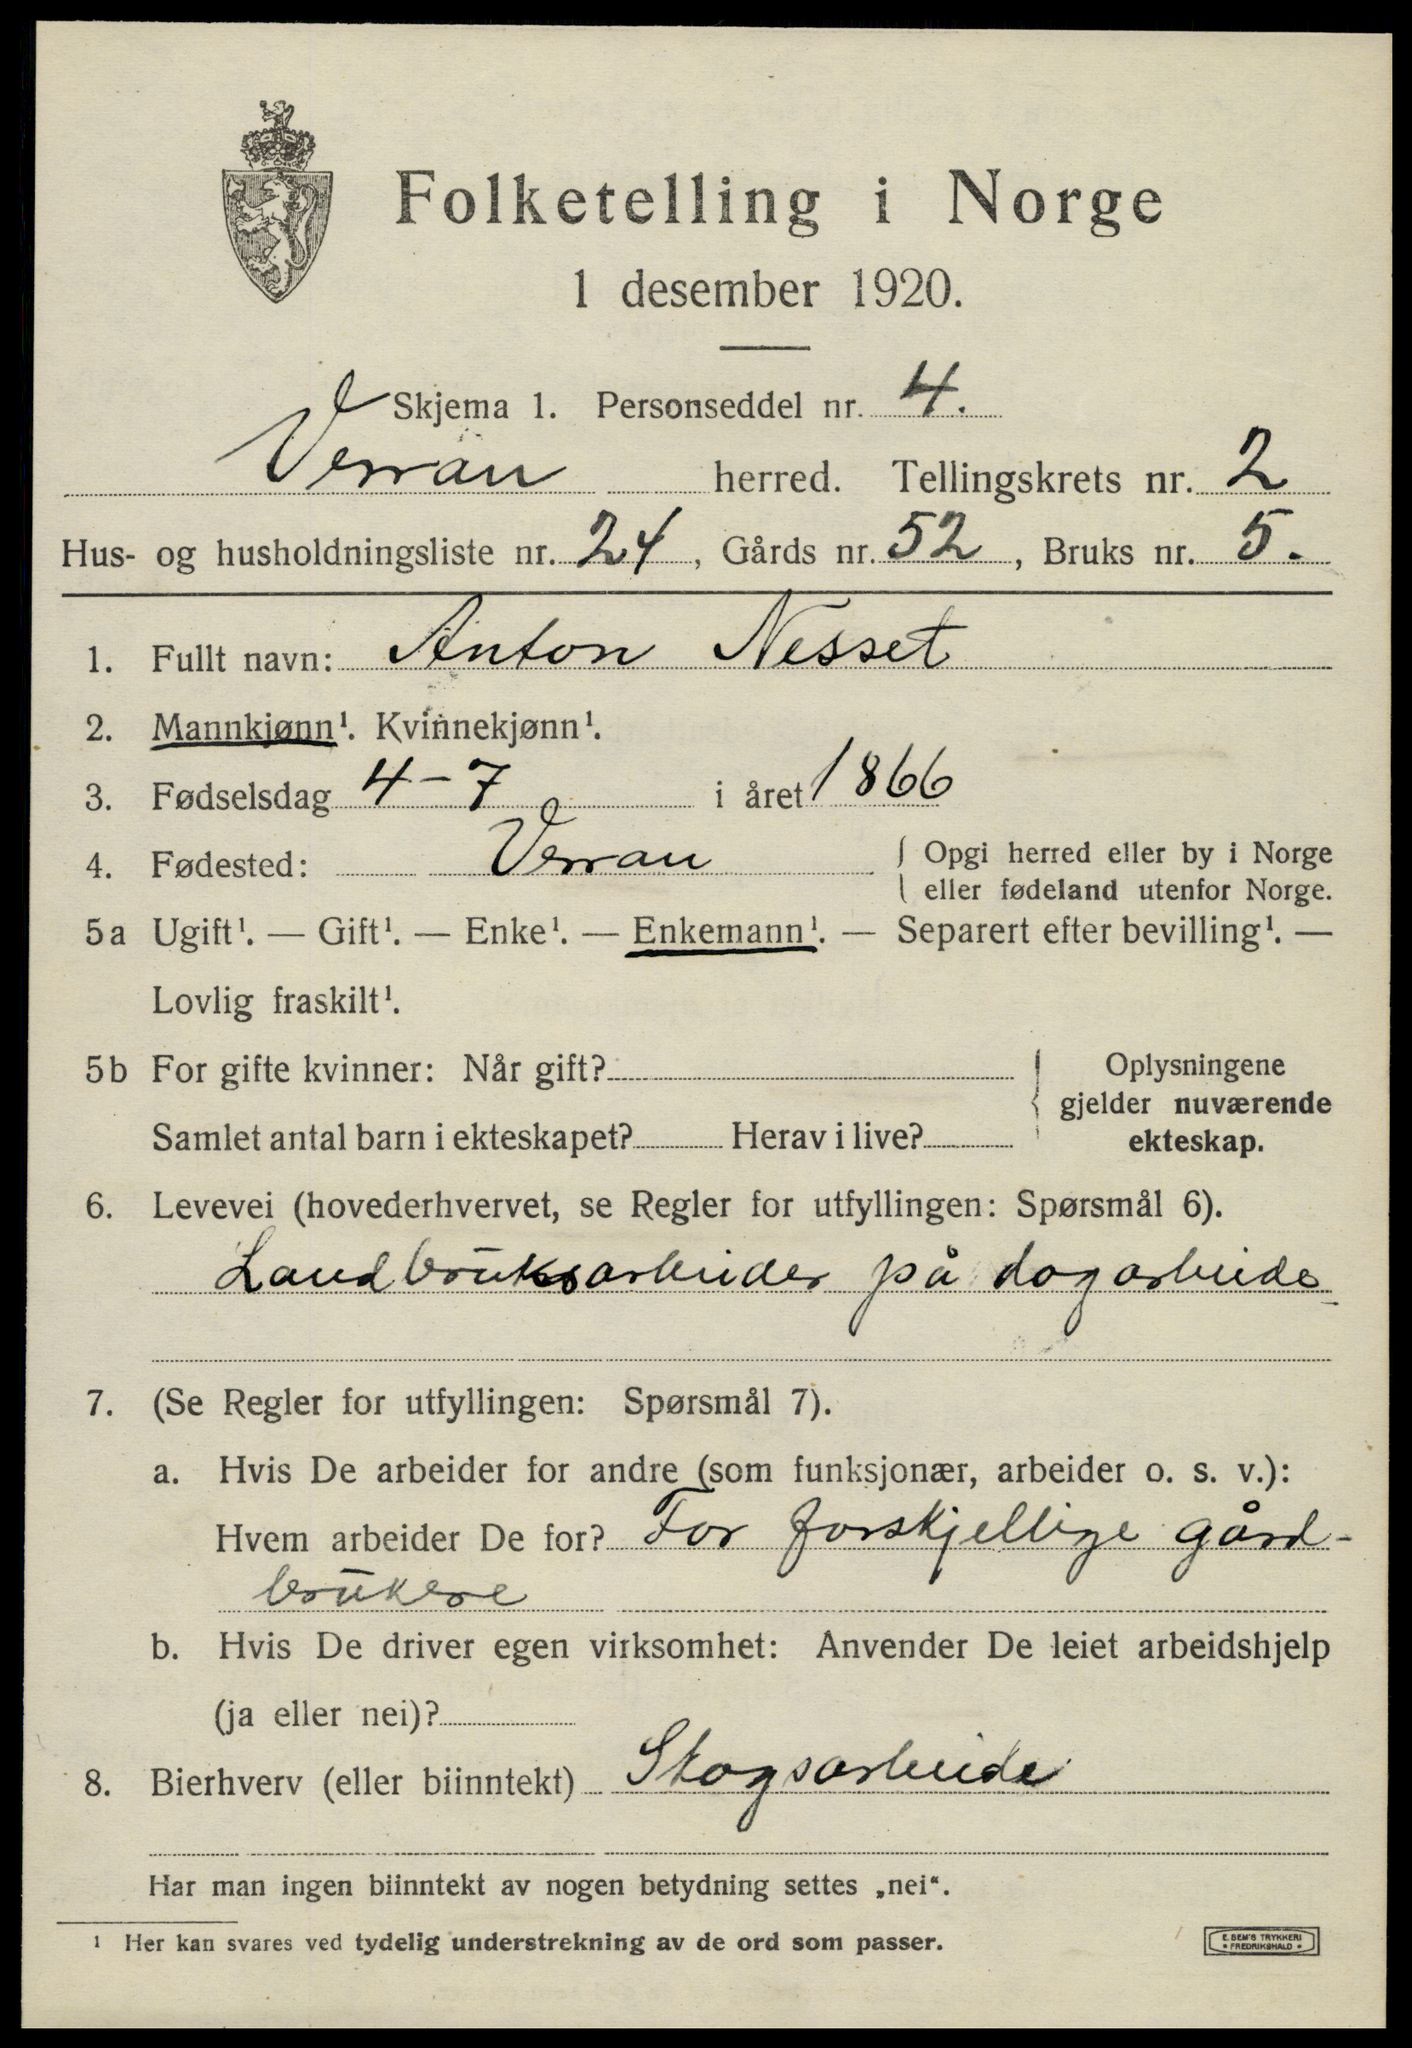 Folketelling i Norge
1 desember 1920.
Skjema 1. Personseddel nr. 4.
Verran herred. Tellingskrets nr. 2
Hus- og husholdningsliste nr. 24, Gårds nr. 52, Bruks nr. 5.
1. Fullt navn: Anton Nesset
2. Mannkjønn¹. Kvinnekjønn¹.
3. Fødselsdag 4-7 i året 1866
4. Fødested: Verran { Opgi herred eller by i Norge
eller fødeland utenfor Norge.
5a Ugift¹. — Gift¹. — Enke¹. — Enkemann¹. — Separert efter bevilling¹. —
Lovlig fraskilt¹.
5b For gifte kvinner: Når gift? Oplysningene
gjelder nuværende
Samlet antal barn i ekteskapet? Herav i live? ekteskap.
6. Levevei (hovederhvervet, se Regler for utfyllingen: Spørsmål 6).
Landbruksarbeider på dagarbeide
7. (Se Regler for utfyllingen: Spørsmål 7).
a. Hvis De arbeider for andre (som funksjonær, arbeider o. s. v.):
Hvem arbeider De for? For forskjellige gård-
brukere
b. Hvis De driver egen virksomhet: Anvender De leiet arbeidshjelp
(ja eller nei)?
8. Bierhverv (eller biinntekt) Skogsarbeide
Har man ingen biinntekt av nogen betydning settes „nei“.
¹ Her kan svares ved tydelig understrekning av de ord som passer.
E. SEM'S TRYKKERI
* FREDRIKSHALD *